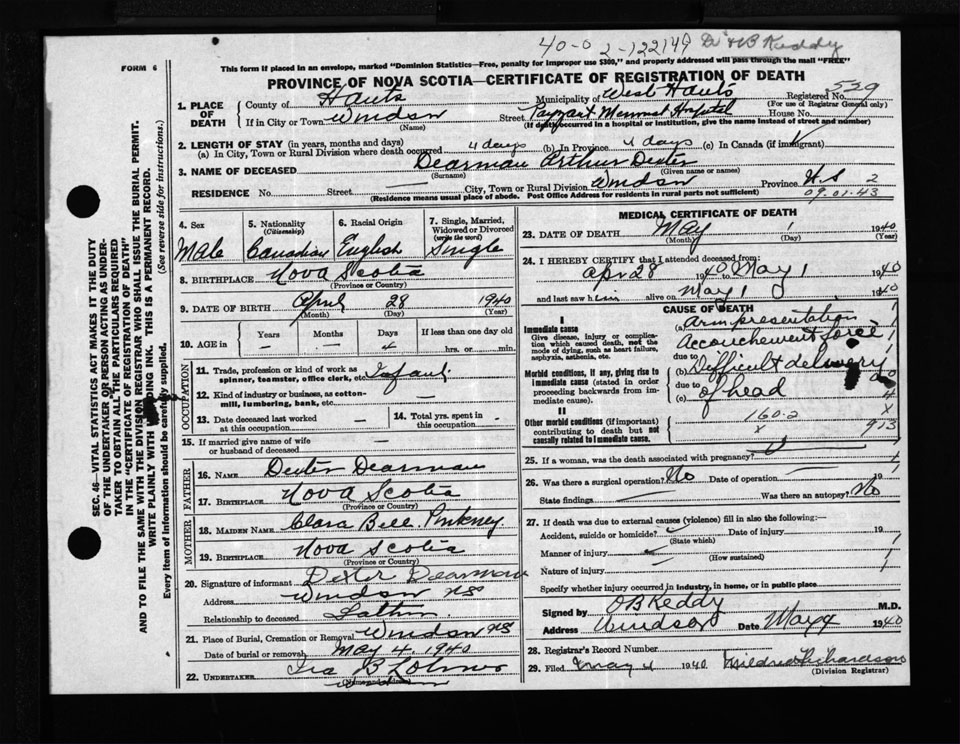 40-0 2-122149 Dr HB Keddy
FORM 6
This form if placed in an envelope, marked "Dominion Statistics—Free, penalty for improper use $300," and properly addressed will pass through the mail "FREE"
PROVINCE OF NOVA SCOTIA—CERTIFICATE OF REGISTRATION OF DEATH
SEC. 46—VITAL STATISTICS ACT MAKES IT THE DUTY
OF THE UNDERTAKER OR PERSON ACTING AS UNDER-
TAKER TO OBTAIN ALL THE PARTICULARS REQUIRED
IN THE "CERTIFICATE OF REGISTRATION OF DEATH"
AND TO FILE THE SAME WITH THE DIVISION REGISTRAR WHO SHALL ISSUE THE BURIAL PERMIT.
WRITE PLAINLY WITH INK. THIS IS A PERMANENT RECORD.
Every item of Information should be carefully supplied. (See reverse side for instructions.)
1. PLACE OF DEATH
County of Hants Municipality of West Hants Registered No. 539
(For use of Registrar General only)
If in City or Town Windsor Street Payzant Memorial Hospital House No.
(Name) (If death occurred in a hospital or institution, give the name instead of street and number)
2. LENGTH OF STAY (in years, months and days)
(a) In City, Town or Rural Division where death occurred 4 days (b) In Province 4 days (c) In Canada (if immigrant)
3. NAME OF DECEASED Dearman Arthur Dexter
(Surname) (Given name or names)
RESIDENCE No. — Street City, Town or Rural Division Windsor Province N.S. 2
(Residence means usual place of abode. Post Office Address for residents in rural parts not sufficient) 09.01.43
4. Sex
Male
5. Nationality
(Citizenship)
Canadian
6. Racial Origin
English
7. Single, Married, Widowed or Divorced
(write the word)
Single
8. BIRTHPLACE Nova Scotia
(Province or Country)
9. DATE OF BIRTH April 28 1940
(Month) (Day) (Year)
10. AGE in
Years —
Months —
Days 4
If less than one day old
hrs. or min.
OCCUPATION
11. Trade, profession or kind of work as spinner, teamster, office clerk, etc. Infant
12. Kind of industry or business, as cotton-mill, lumbering, bank, etc.
13. Date deceased last worked at this occupation —
14. Total yrs. spent in this occupation -
15. If married give name of wife or husband of deceased —
FATHER
16. NAME Dexter Dearman
17. BIRTHPLACE Nova Scotia
(Province or Country)
MOTHER
18. MAIDEN NAME Clara Bell Pinkney
19. BIRTHPLACE Nova Scotia
(Province or Country)
20. Signature of informant Dexter Dearman
Address Windsor NS
Relationship to deceased Father
21. Place of Burial, Cremation or Removal Windsor NS
Date of burial or removal May 4, 1940
22. UNDERTAKER Ira B
MEDICAL CERTIFICATE OF DEATH
23. DATE OF DEATH May 1 1940
(Month) (Day) (Year)
24. I HEREBY CERTIFY that I attended deceased from:
Apr 28 1940 to May 1 1940
and last saw him alive on May 1 1940
CAUSE OF DEATH
I
Immediate cause
Give disease, injury or complication which caused death, not the mode of dying, such as heart failure, asphyxia, asthenia, etc.
(a) Arm presentation
Accouchement forcé
due to
Morbid conditions, if any, giving rise to immediate cause (stated in order proceeding backwards from immediate cause).
(b) Difficult delivery
due to
(c) of head
II
Other morbid conditions (if important) contributing to death but not causally related to immediate cause.
160-2
x
25. If a woman, was the death associated with pregnancy?
26. Was there a surgical operation? No Date of operation 19
State findings — Was there an autopsy? No
27. If death was due to external causes (violence) fill in also the following:—
Accident, suicide or homicide? Date of injury 19
(State which)
Manner of injury
(How sustained)
Nature of injury
Specify whether injury occurred in industry, in home, or in public place
Signed by OB Keddy M.D.
Address Windsor Date May 4 1940
28. Registrar's Record Number
29. Filed May 4 1940 Mildred Richardson
(Division Registrar)